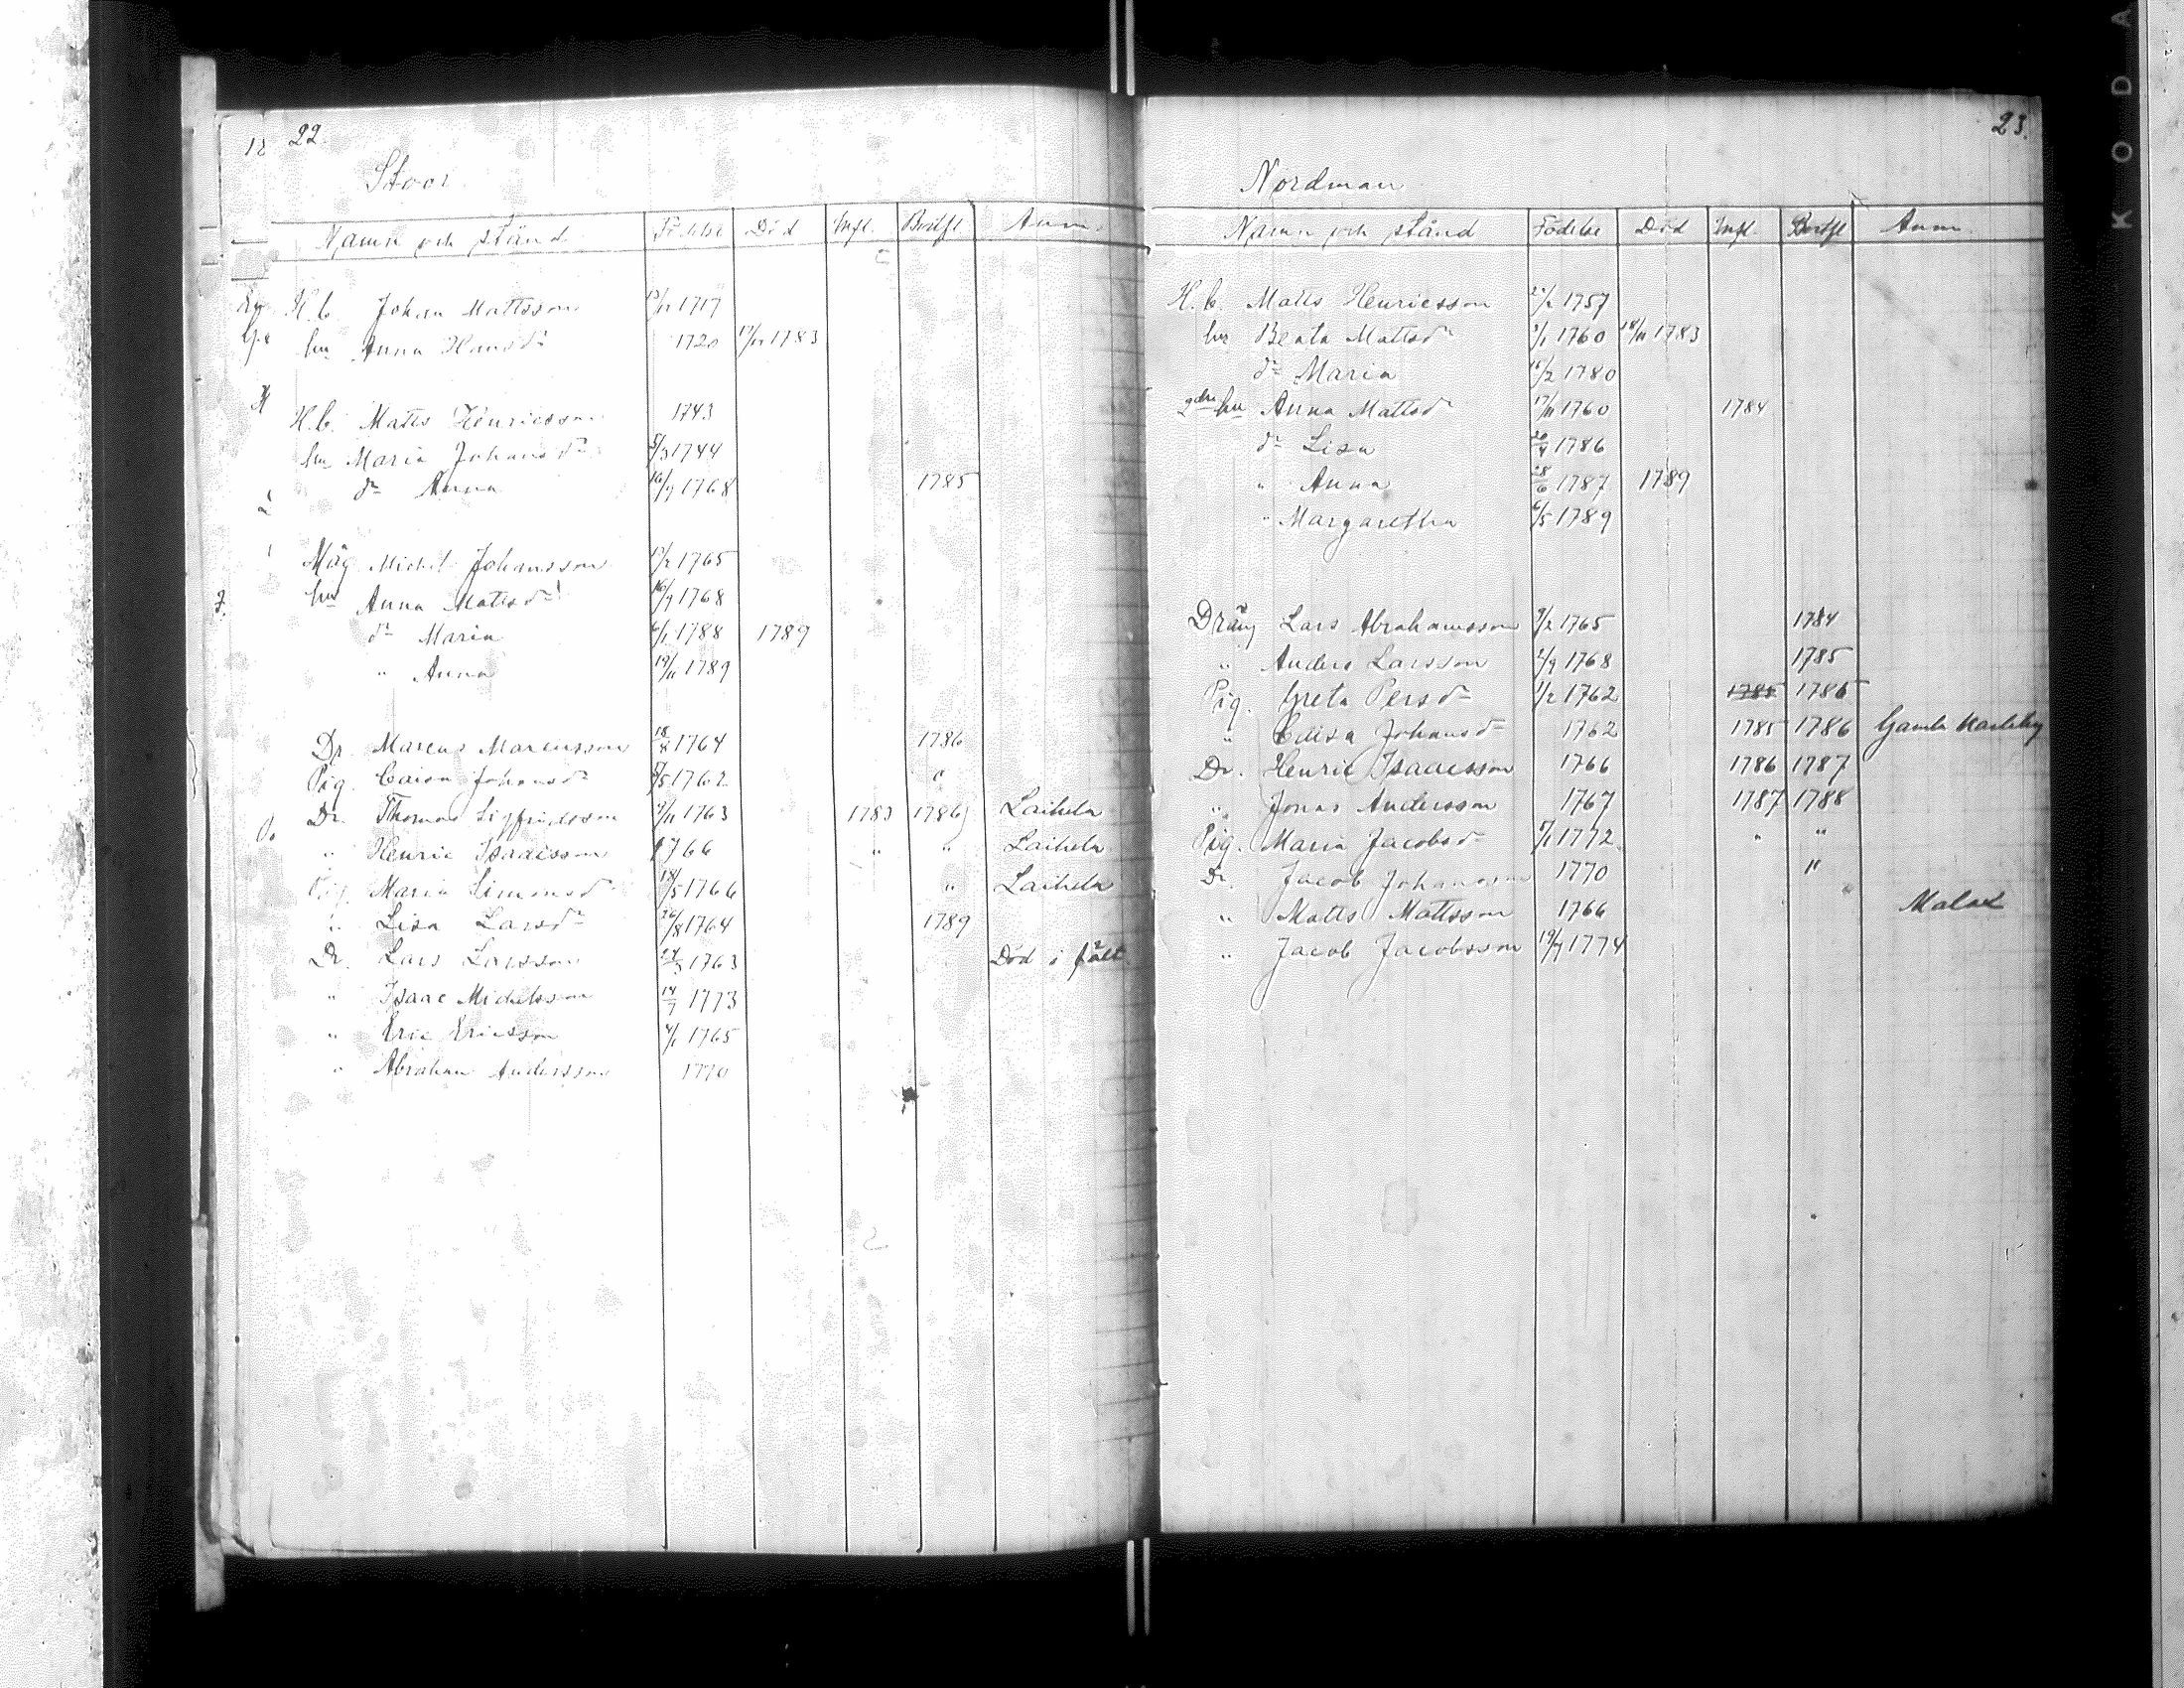 22.
Stoor
Namn och stånd Födelse Död Infl. Bortfl Anm.
H.b. Johan Mattsson 1717
hu Anna Hansdr 1720 1783
H.b. Matts Henricsson 1743
hu Maria Johansdr 5/3 1744
dr Anna 16/9 1768 1785
Måg Michel Johansson 1765
hu Anna Mattsdr 16/9 1768
dr Maria 6/1 1788 1789
" Anna 19/11 1789
Dr. Marcus Marcusson 18/8 1764 1786
Pig. Caisa Johansdr 5/5 1762 "
Dr. Thomas Sigfridsson 9/11 1763 1783 1786 Laihela
" Henric Isaacsson 1766 " " Laihela
Pig. Maria Simonsdr 18/5 1766 " Laihela
" Lisa Larsdr 26/8 1764 1789
Dr. Lars Larsson 24/3 1763 Död i fält
" Isaac Michelsson 14/7 1773
" Eric Ericsson 4/1 1765
" Abraham Andersson 1770
23.
Nordman
Namn och stånd Födelse Död Infl. Bortfl Anm.
H.b. Matts Henricsson 1757
hu Beata Mattsdr 1/1 1760 18/11 1783
dr Maria 15/2 1780
2dra hu Anna Mattsdr 17/11 1760 1784
dr Lisa 26/4 1786
" Anna 28/6 1787 1789
" Margaretha 6/5 1789
Dräng Lars Abrahamsson 9/2 1765 1784
" Anders Larsson 2/9 1768 1785
Pig. Greta Persdr 1/2 1762 1785 1786
" Caisa Johansdr 1762 1785 1786 Gamla Karleby
Dr. Henric Isaacsson 1766 1786 1787
" Jonas Andersson 1767 1787 1788
Pig. Maria Jacobsdr 1772 " "
Dr. Jacob Johansson 1770 "
" Matts Mattsson 1766 Malax
" Jacob Jacobsson 19/7 1774
KODA